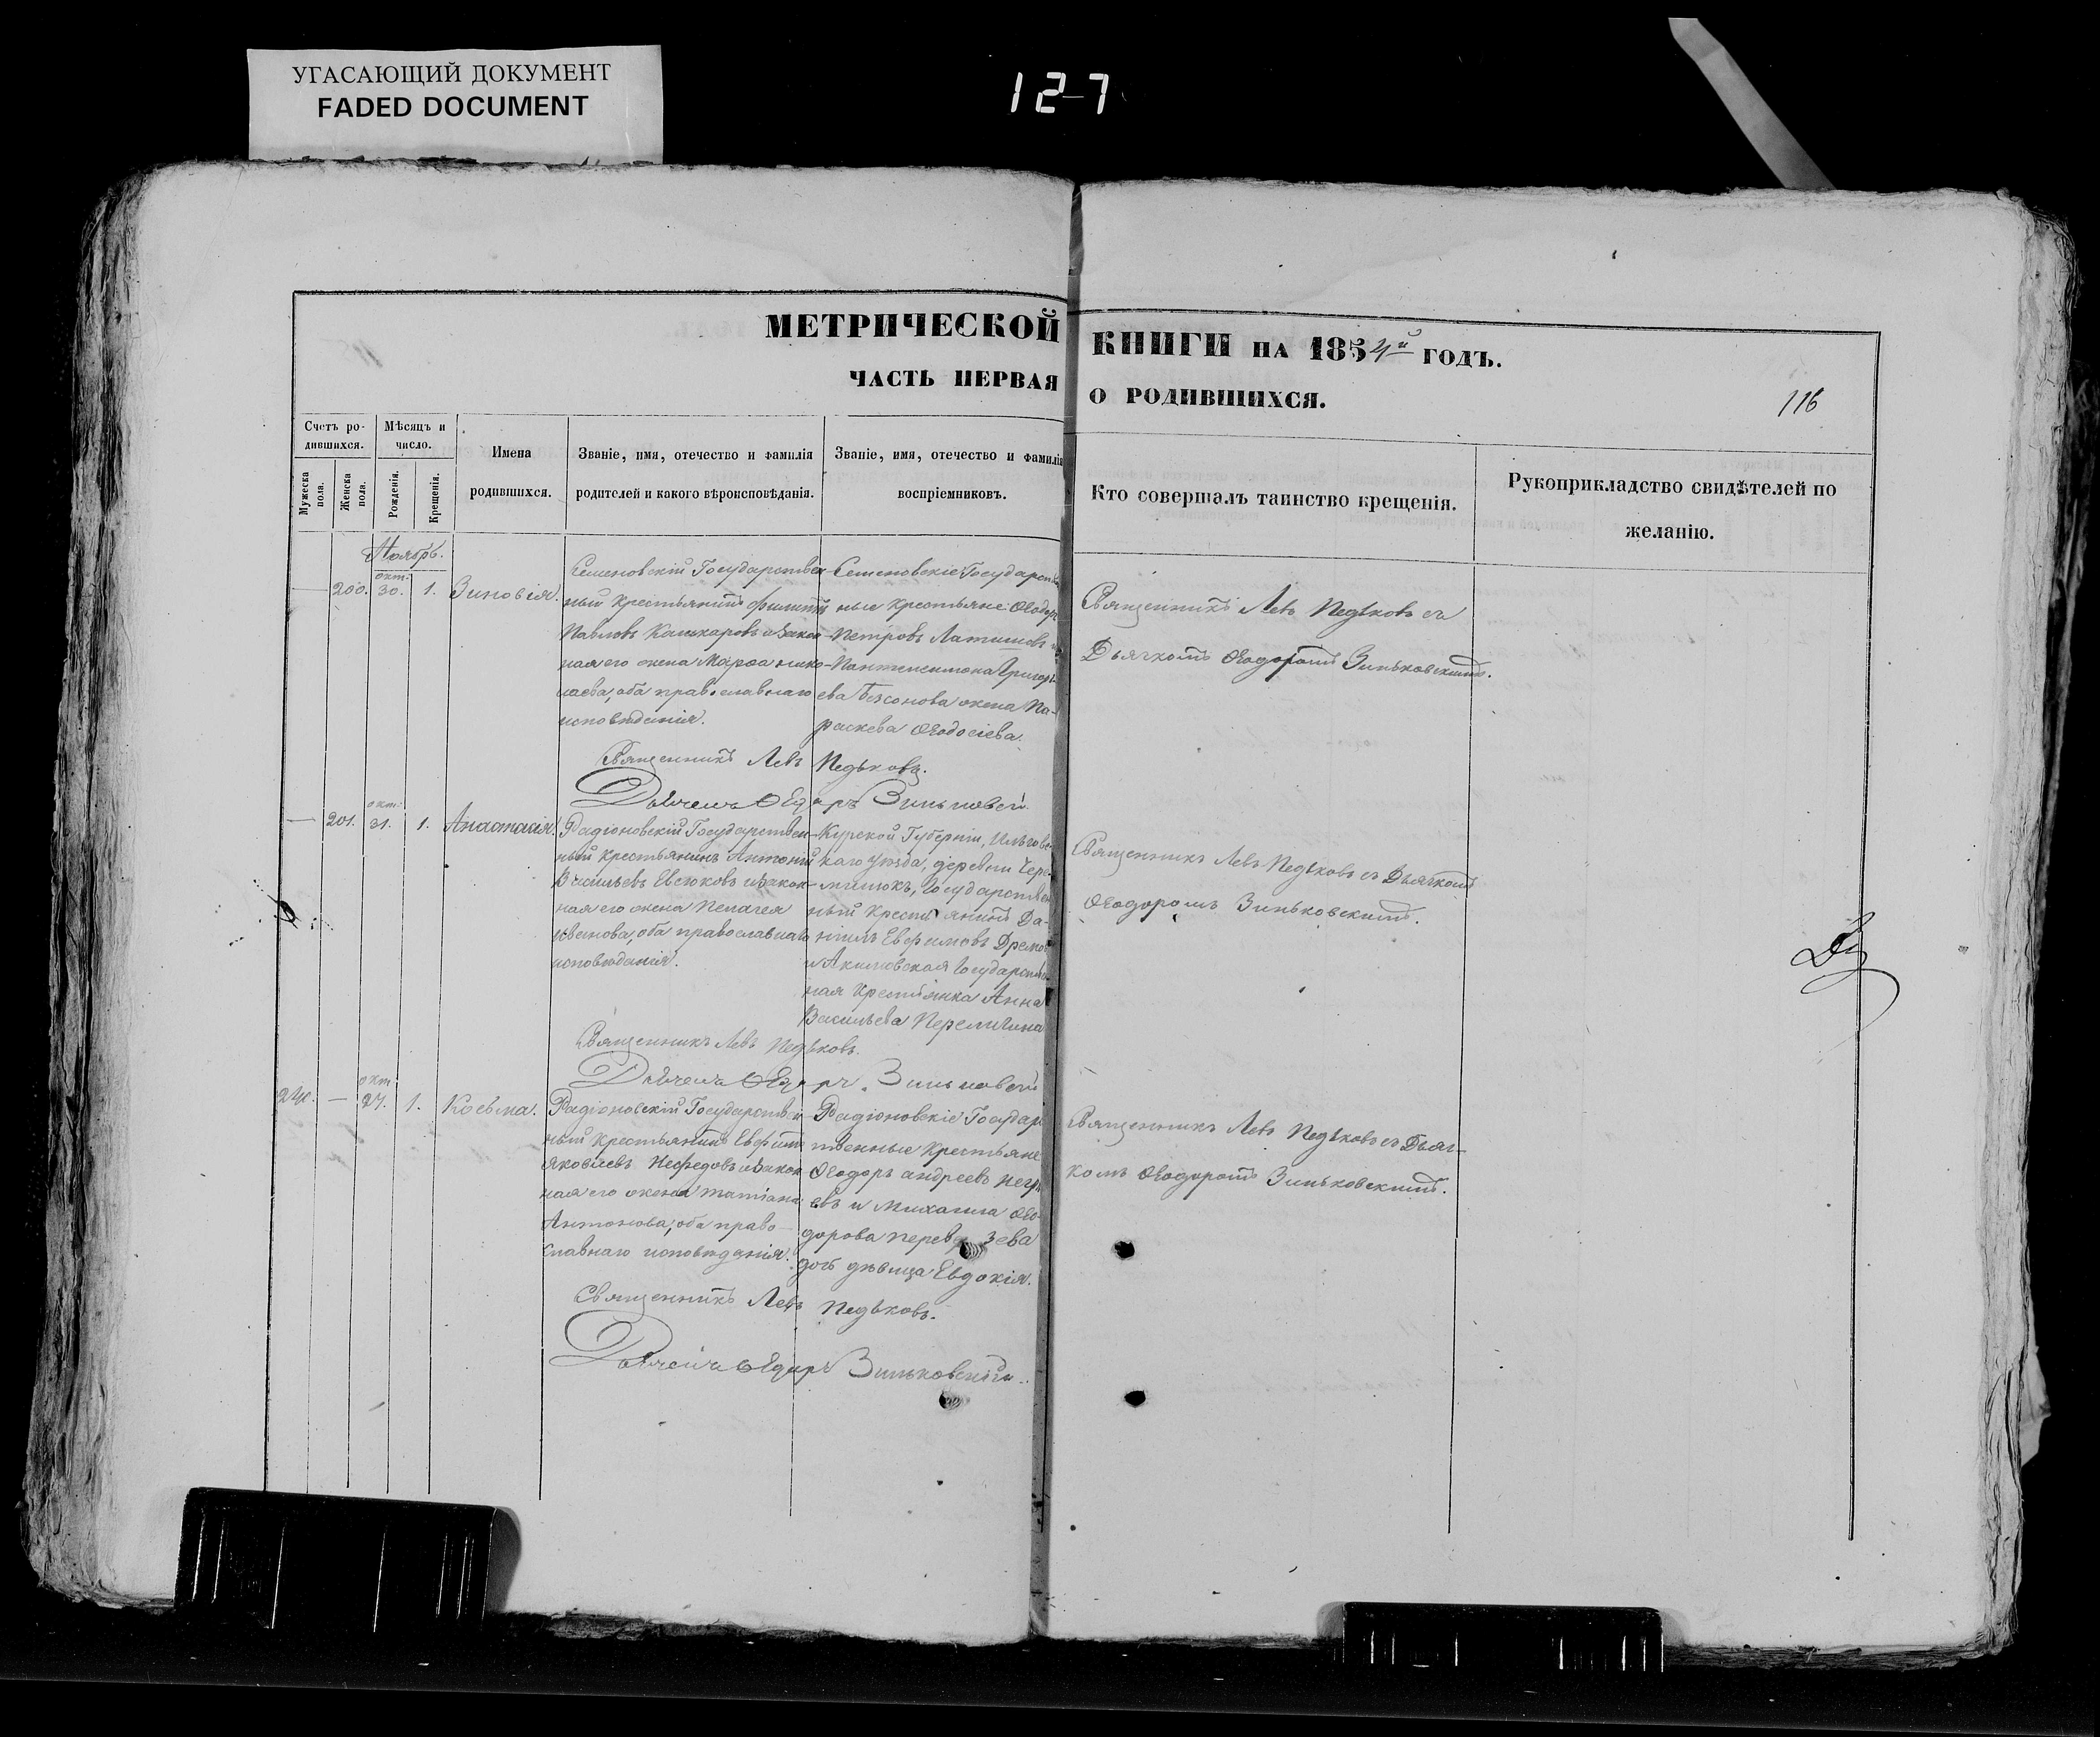 УГАСАЮЩИЙ ДОКУМЕНТ
FADED DOCUMENT
12-7
МЕТРИЧЕСКОЙ КНИГИ НА 1854й ГОДЪ.
ЧАСТЬ ПЕРВАЯ О РОДИВШИХСЯ.
116
Счетъ ро-
дившихся.
Мужеска пола.
Женска пола.
Мѣсяцъ и
число.
Рожденія.
Крещенія.
Имена
родившихся.
Званіе, имя, отечество и фамилія
родителей и какого вѣроисповѣданія.
Званіе, имя, отечество и фамилія
воспріемниковъ.
Кто совершалъ таинство крещенія.
Рукоприкладство свидѣтелей по
желанію.
Ноябрь.
— 200. окт: 30. 1. Зиновія.
Семеновскій Государствен-
ный крестьянинъ Филиппъ
Павловъ Кашкаровъ и закон-
ная его жена Марѳа Нико-
лаева, оба православнаго
исповѣданія.
Семеновскіе Государствен
ные крестьяне: Ѳеодоръ
Петровъ Латишевъ и
Пантелеимона Григорь
ева Безсонова жена Па-
раскева Ѳеодосіева.
Священникъ Левъ Педьковъ съ
Дьячкомъ Ѳеодоромъ Зиньковскимъ.
Священникъ Левъ Педьковъ.
Дьячекъ Ѳеодоръ Зиньковскій
— 201. окт: 31. 1. Анастасія.
Радіоновскій Государствен-
ный крестьянинъ Антоній
Васильевъ Евсюковъ и закон-
ная его жена Пелагея
Иванова, оба православнаго
исповѣданія.
Курской Губерніи, Льгов
каго уѣзда, деревни Чере-
мошокъ, Государствен
ный крестьянинъ Да-
ніилъ Евфимовъ
и Акимовская Государствен
ная крестьянка Анна
Васильева
Священникъ Левъ Педьковъ съ Дьячкомъ
Ѳеодоромъ Зиньковскимъ.
Священникъ Левъ Педьковъ.
Дьячекъ Ѳеодоръ Зиньковскій
— окт 27. 1. Косьма.
Радіоновскій Государствен
ный крестьянинъ Евфимъ
Яковлевъ Нефедовъ и закон
ная его жена Татіана
Антонова, оба право-
славнаго исповѣданія.
Радіоновскіе Государс
твенные крестьяне
Ѳеодоръ Андреевъ
евъ и Михаила Ѳео-
дорова
дочь дѣвица Евдокія.
Священникъ Левъ Педьковъ съ Дьяч-
комъ Ѳеодоромъ Зиньковскимъ.
Священникъ Левъ Педьковъ.
Дьячекъ Ѳеодоръ Зиньковскій